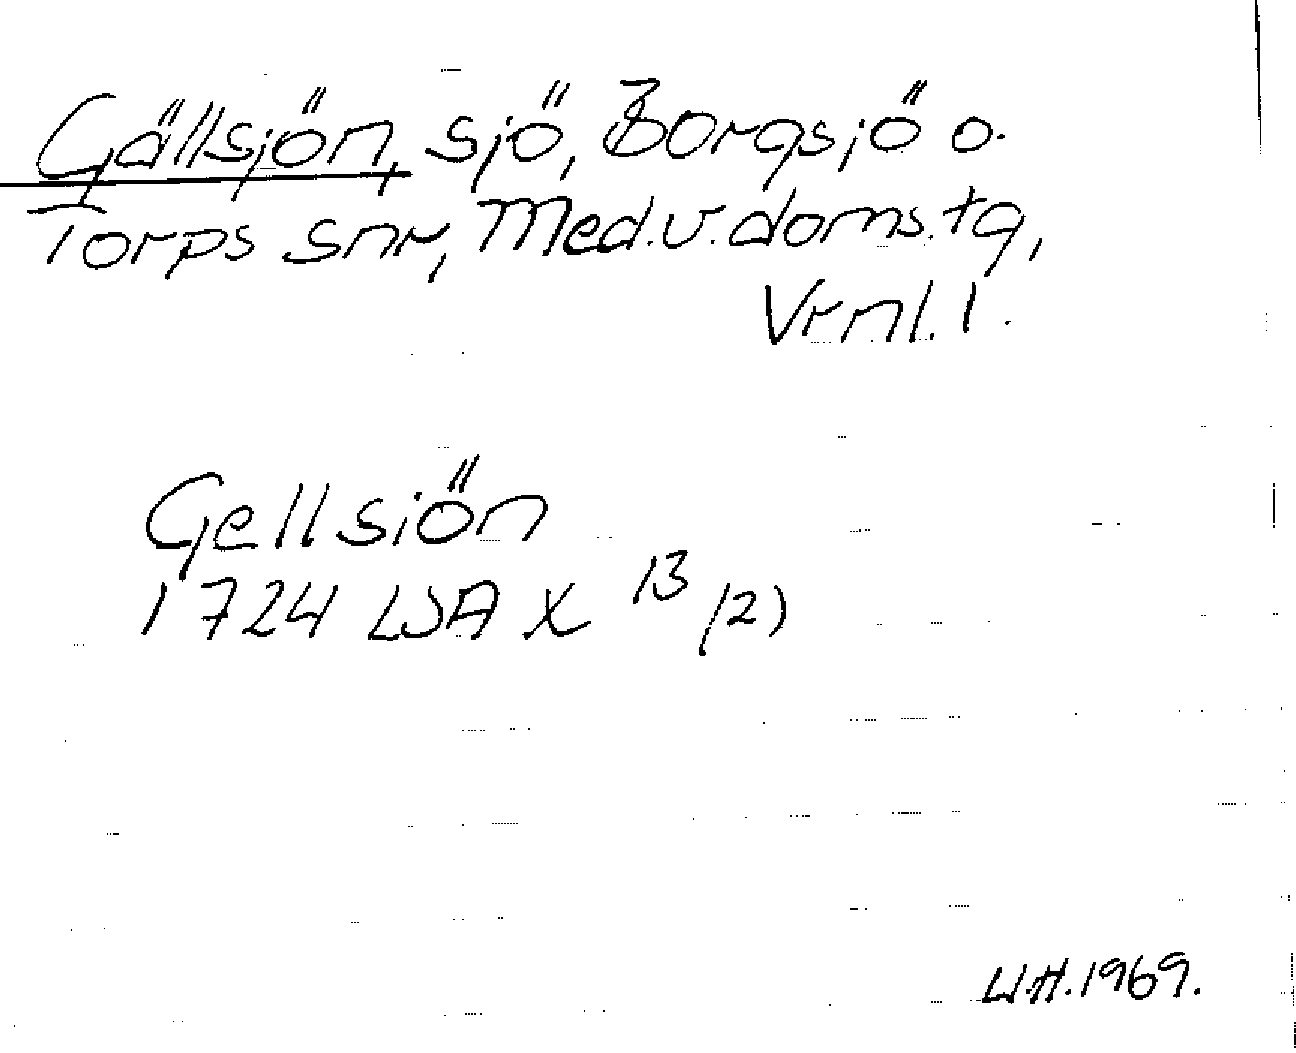 Gällsjön, sjö, Borgsjö o.
Torps snr, Med.v.doms.tg,
Vrnl. l.
Gellsiön
1724 LSA X 13/(2)
W.H. 1969.